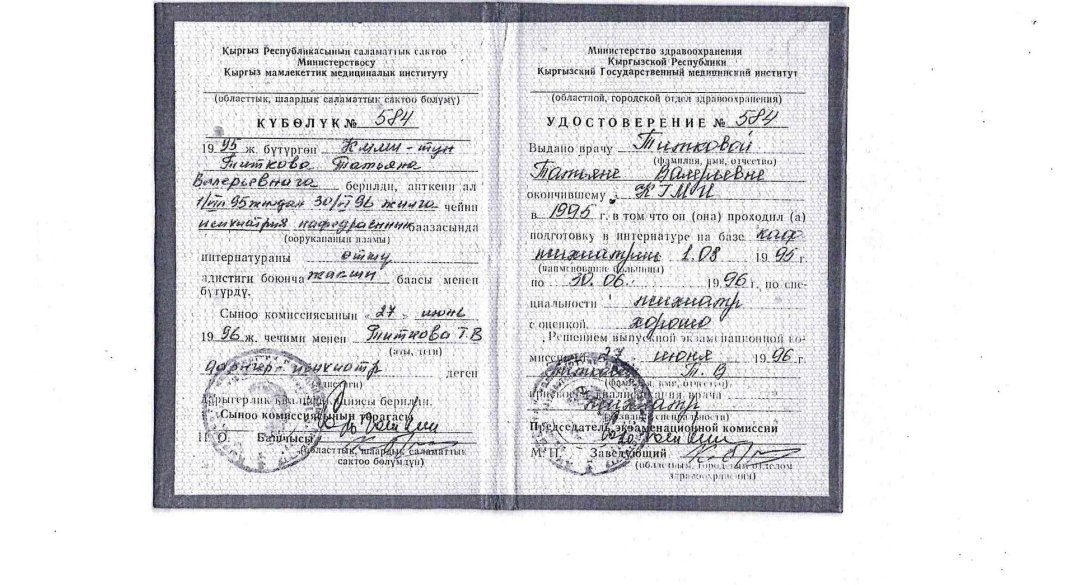 Кыргыз Республикасынын саламаттык сактоо
Министерствосу
Кыргыз мамлекеттик медициналык институту
(областтык, шаардык саламаттык сактоо бөлүмү)
КҮБӨЛҮК № 584
1995 ж. бүтүргөн КММИ-тун
Титкова Татьяна
Валерьевнага берилди, анткени ал
1/VIII 95 жылдан 30/VI 96 жылга чейин
психиатрия кафедрасынын баазасында
(оорукананын аталышы)
интернатураны өттү
адистиги боюнча жакшы баасы менен
бүтүрдү.
Сыноо комиссиясынын «27» июнь
1996 ж. чечими менен Титкова Т.В
(аты, теги)
дарыгер-психиатр деген
(адистиги)
Дарыгерлик квалификациясы берилди.
Сыноо комиссиясынын төрагасы
Башчысы
(областтык, шаардык саламаттык
сактоо бөлүмдүн)
Министерство здравоохранения
Кыргызской Республики
Кыргызский Государственный медицинский институт
(областной, городской отдел здравоохранения)
УДОСТОВЕРЕНИЕ № 584
Выдано врачу Титковой
(фамилия, имя, отчество)
Татьяне Валерьевне
окончившему КГМИ
в 1995 г. в том что он (она) проходил (а)
подготовку в интернатуре на базе каф
психиатрии 1.08 1995 г.
(наименование больницы)
по 30.06. 1996 г. по спе-
циальности психиатр
с оценкой хорошо
Решением выпускной экзаменационной ко-
миссии 27 июня 1996 г.
Титковой Т. В
(фамилия, имя, отчество)
присвоена квалификация врача
психиатр
(название специальности)
Председатель экзаменационной комиссии
М. П. Заведующий
(областным, городским отделом
здравоохранения)